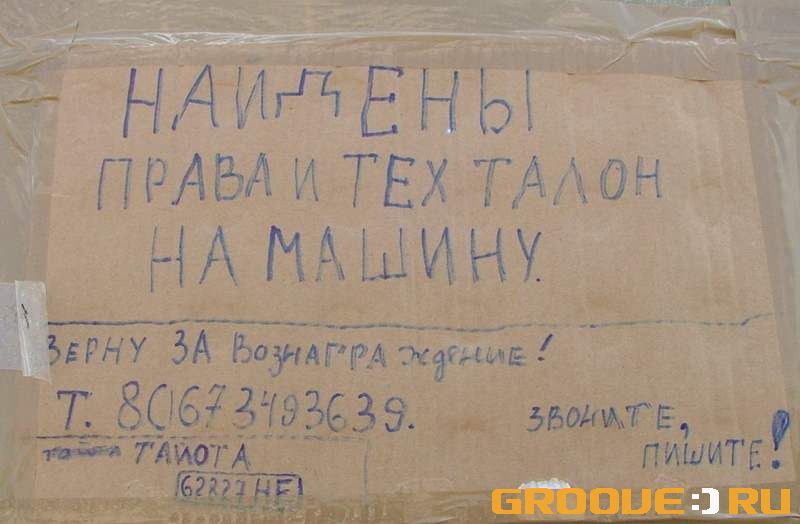 НАЙДЕНЫ
ПРАВА И ТЕХ ТАЛОН
НА МАШИНУ.
ВЕРНУ ЗА ВОЗНАГРАЖДЕНИЕ!
Т. 80673493639.
ЗВОНИТЕ,
ПИШИТЕ!
ТАЙОТА
62227НЕ
GROOVE:)RU